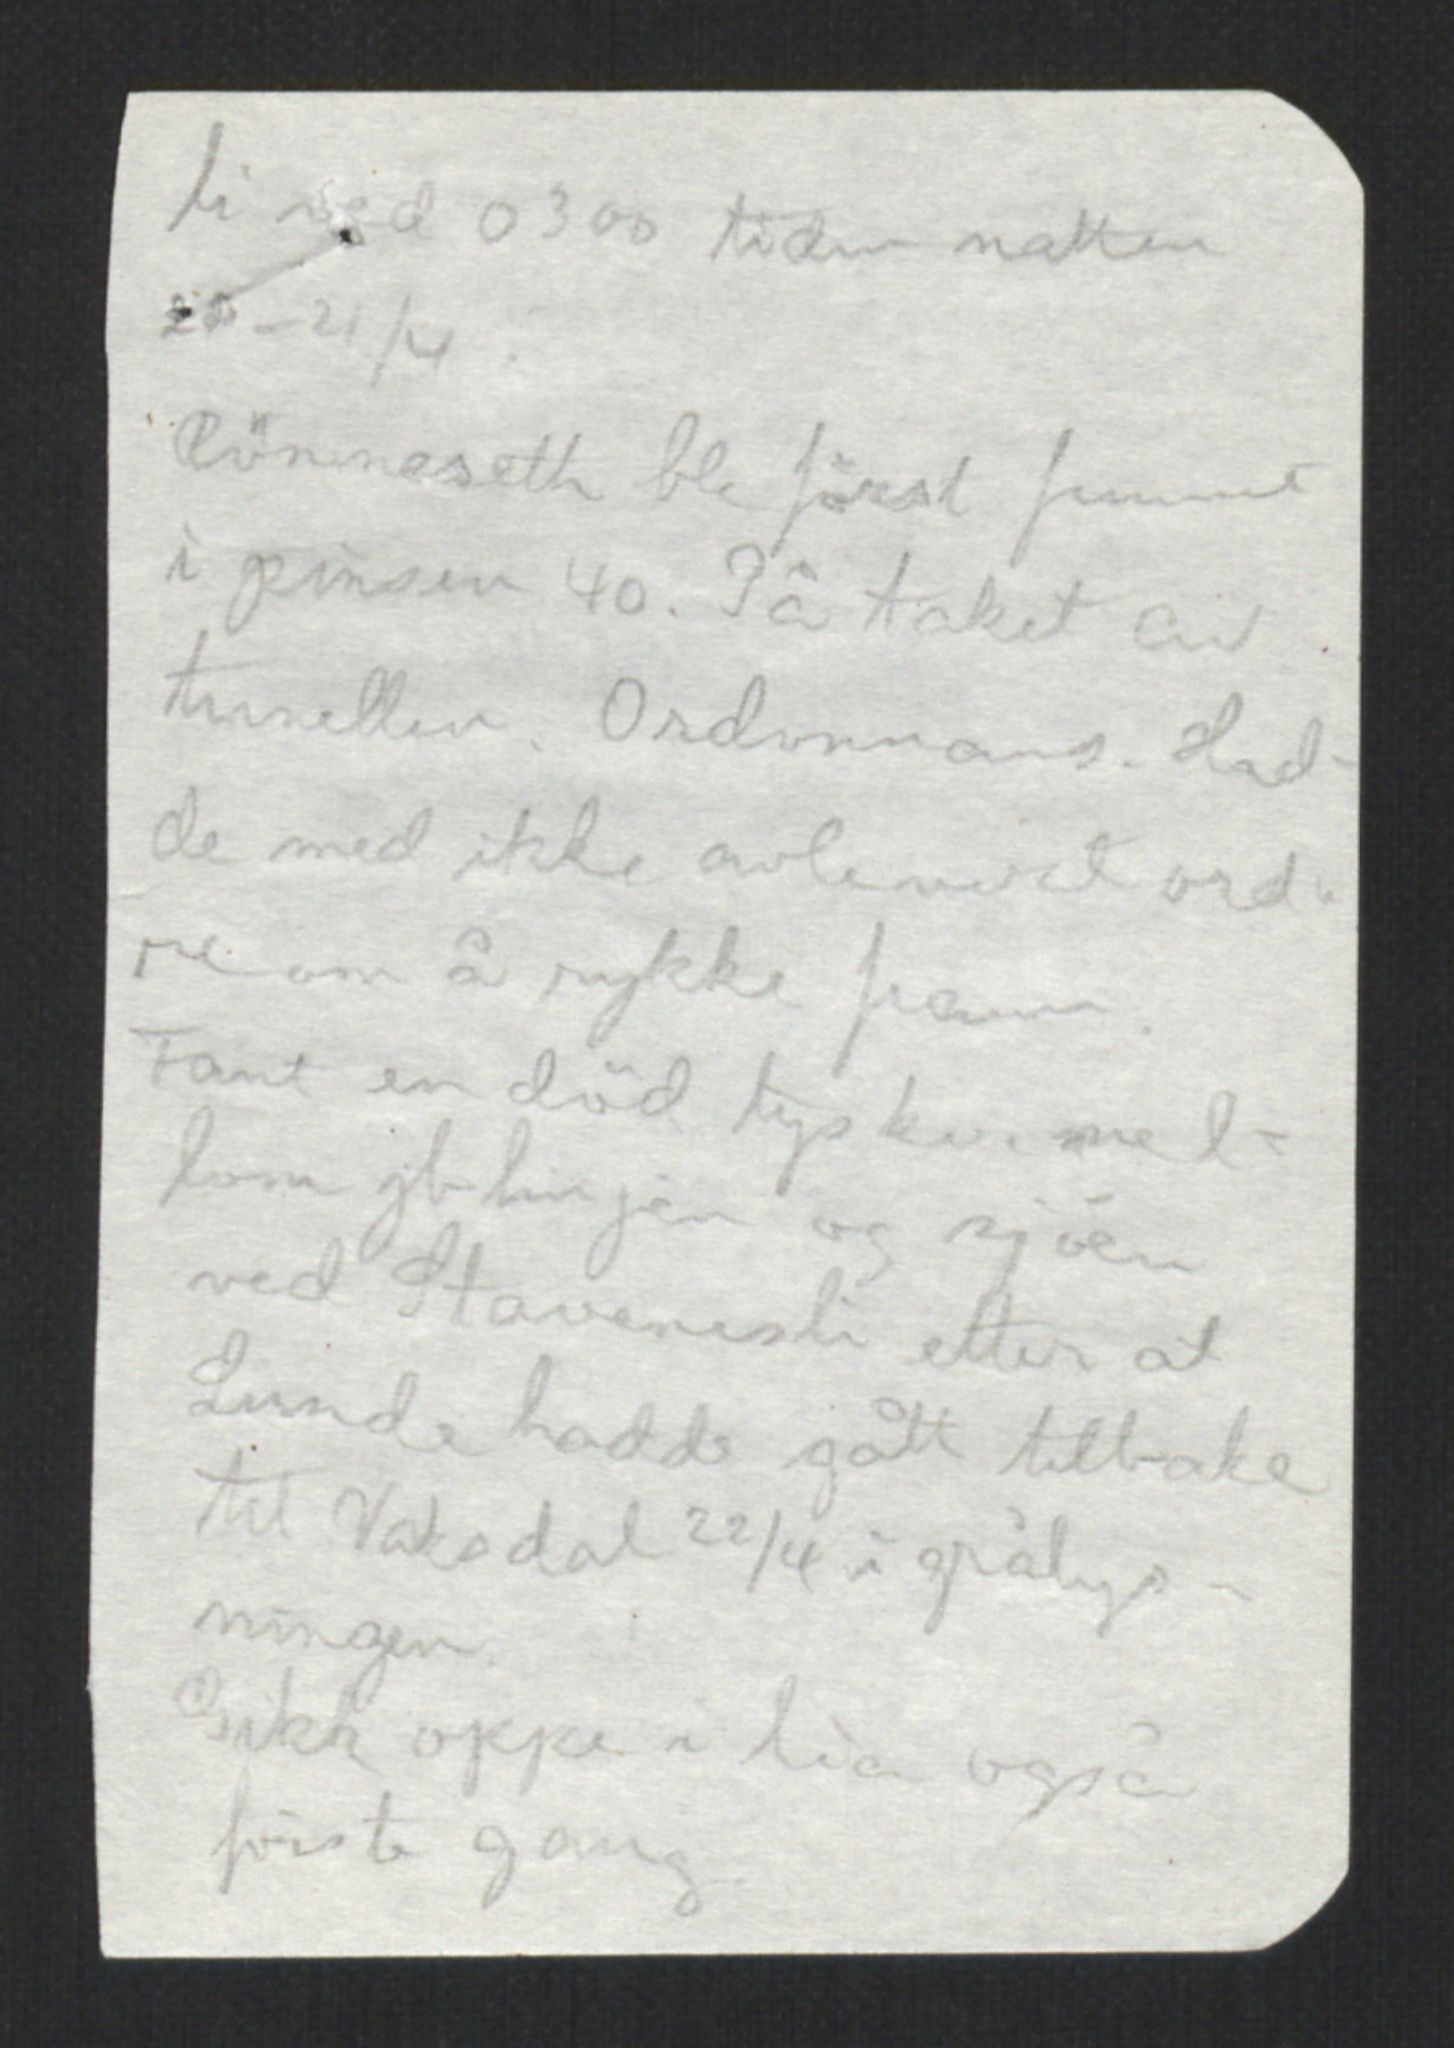 li ved 0300 tiden natten
20-21/4.
Rönneseth ble först funnet
i pinsen 40. På taket av
tunellen. Ordonnans. Had-
de med ikke avleveret ord-
re om å rykke fram.
Fant en död tysker mel-
lom jb linjen og sjöen
ved Stavenesli etter at
Lunde hadde gått tilbake
til Vaksdal 22/4 i grålys-
ningen.
oppe i lia også
förste gang.